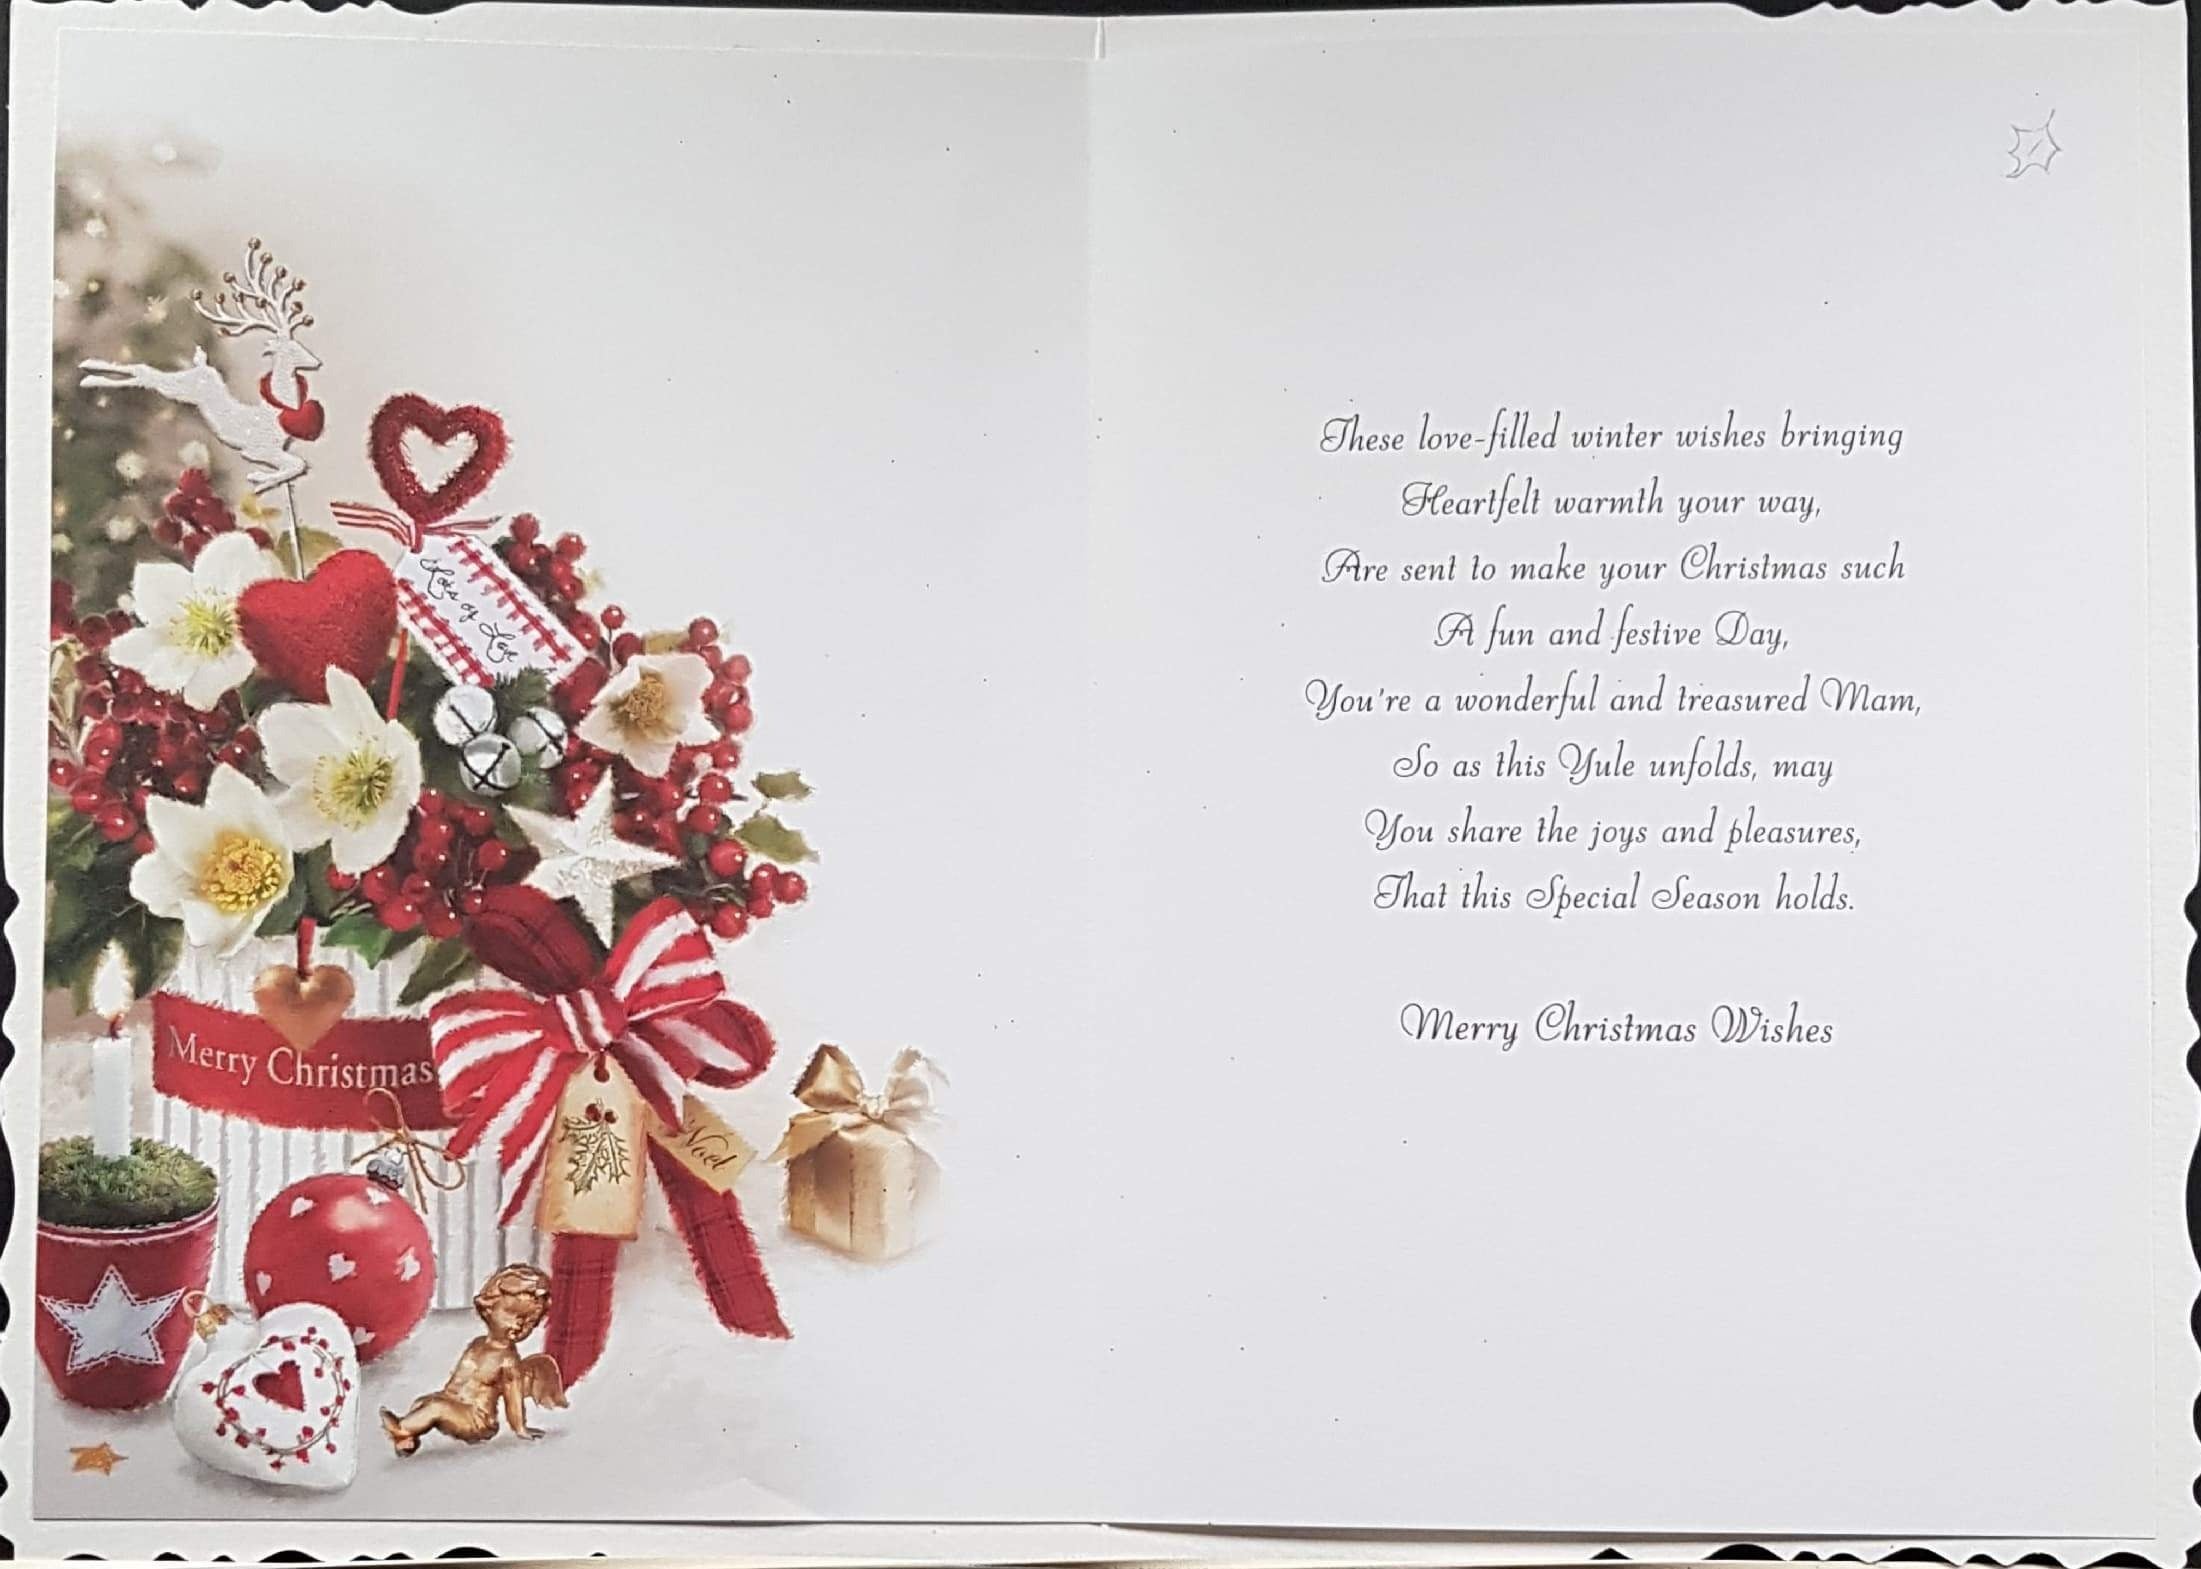 Lots of Love
Merry Christmas
Noel
These love-filled winter wishes bringing
Heartfelt warmth your way,
Are sent to make your Christmas such
A fun and festive Day,
You're a wonderful and treasured Mam,
So as this Yule unfolds, may
You share the joys and pleasures,
That this Special Season holds.
Merry Christmas Wishes